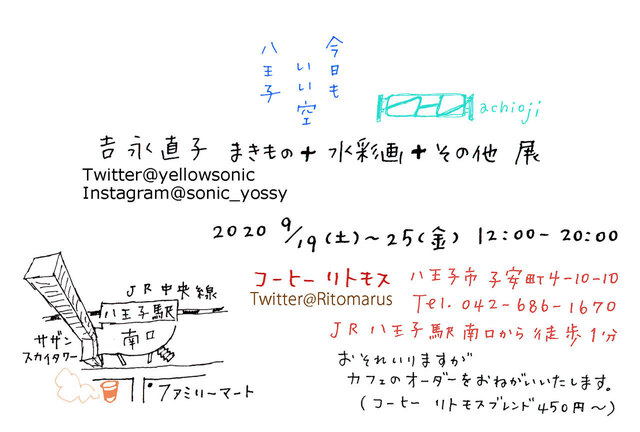 今日も
いい空
八王子
achioji
吉永直子 まきもの+水彩画+その他 展
Twitter@yellowsonic
Instagram@sonic_yossy
2020 9/19(土)~25(金) 12:00-20:00
コーヒー リトモス 八王子市 子安町4-10-10
Twitter@Ritomarus Tel. 042-686-1670
JR 八王子駅 南口から 徒歩1分
おそれいりますが
カフェのオーダーをおねがいいたします。
(コーヒー リトモスブレンド450円~)
JR中央線
八王子駅
南口
サザン
スカイタワー
P ファミリーマート